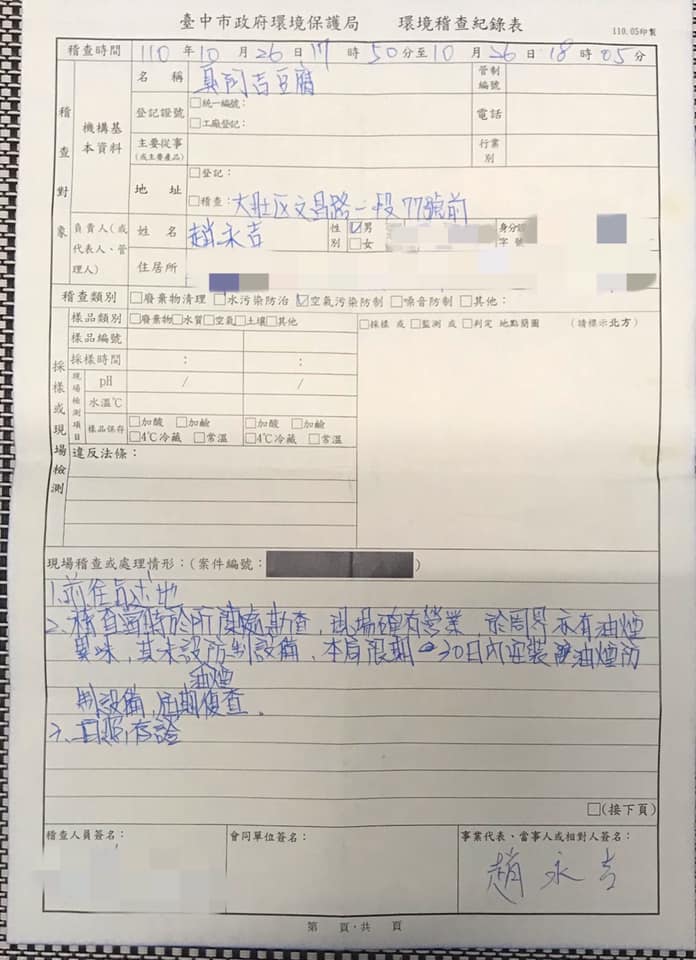 臺中市政府環境保護局 環境稽查紀錄表
110.05印製
稽查時間 110 年 10 月 26 日 17 時 50 分至 10 月 26 日 18 時 05 分
稽查對象
機構基本資料
名稱 真阿吉豆腐
管制編號
登記證號 □統一編號:
□工廠登記:
電話
主要從事(或主要產品)
行業別
地址 □登記:
□稽查: 大肚区文昌路一段77號前
負責人(或代表人、管理人)
姓名 趙永吉
性別 ☑男
□女
身分證字號
住居所
稽查類別 □廢棄物清理 □水污染防治 ☑空氣污染防制 □噪音防制 □其他:
採樣或現場檢測
樣品類別 □廢棄物□水質□空氣□土壤□其他
□採樣 或 □監測 或 □判定 地點簡圖 (請標示北方)
樣品編號
採樣時間 : :
現場檢測項目
pH / /
水溫℃
樣品保存 □加酸 □加鹼 □加酸 □加鹼
□4℃冷藏 □常溫 □4℃冷藏 □常溫
違反法條:
現場稽查或處理情形:(案件編號: )
1.前往
2.稽查當時於所陳處勘查,現場確有營業,於周界亦有油煙
異味,其未設防制設備,本局限期30日內安裝油煙防
油煙
制設備,定期復查.
3.拍照存證
□(接下頁)
稽查人員簽名:
會同單位簽名:
事業代表、當事人或相對人簽名:
趙永吉
第 頁,共 頁